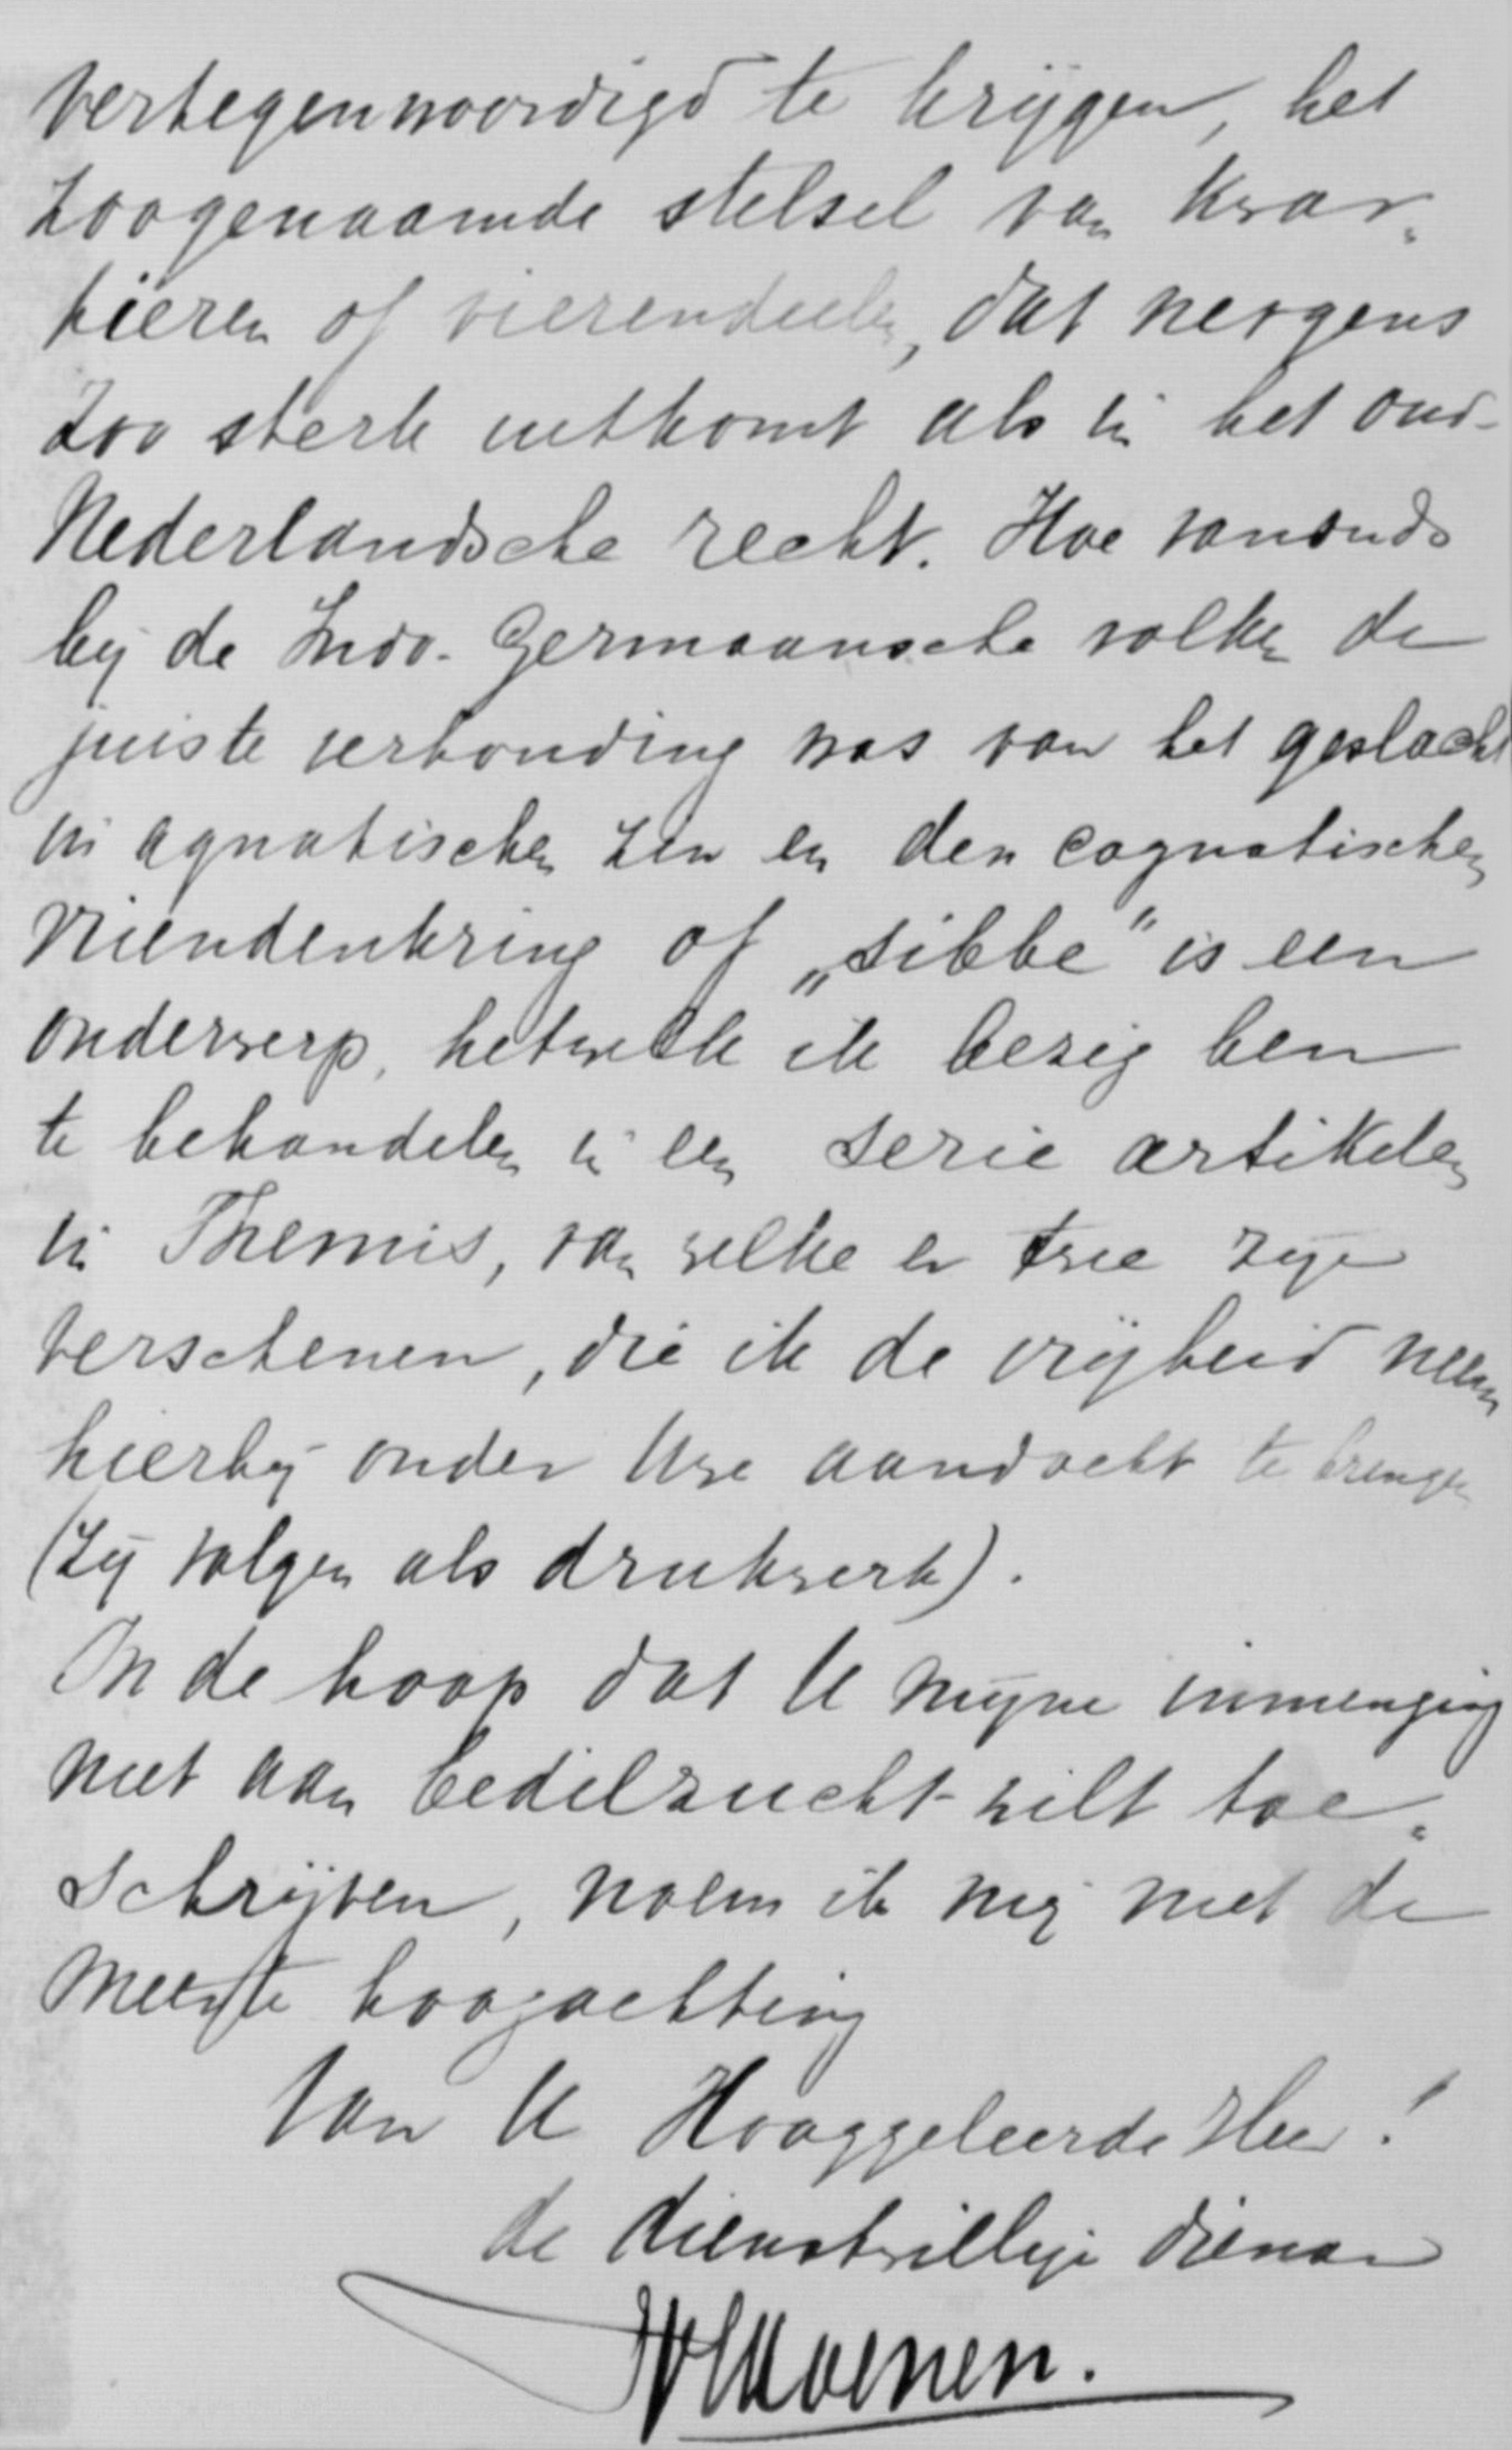 vertegenwoordigd te krijgen, het
zoogenaamde stelsel van kwar-
tieren of vierendeelen, dat nergens
zoo sterk uitkomt als in het oud-
Nederlandsche recht. Hoe vanouds
bij de Indo-Germaansche volken de
juiste verhouding was van het geslacht
in agnatischen zin en den cognatischen
vriendenkring of „sibbe" is een
onderwerp, hetwelk ik bezig ben
te behandelen in een serie artikelen
in Themis, van welke er twee zijn
verschenen, die ik de vrijheid neem
hierbij onder Uwe aandacht te brengen
(zij volgen als drukwerk).
In de hoop dat U mijne inmenging
niet aan bedilzucht wilt toe-
schrijven, noem ik mij met de
meeste hoogachting
Van U Hooggeleerde Heer!
de dienstwillige dienaar